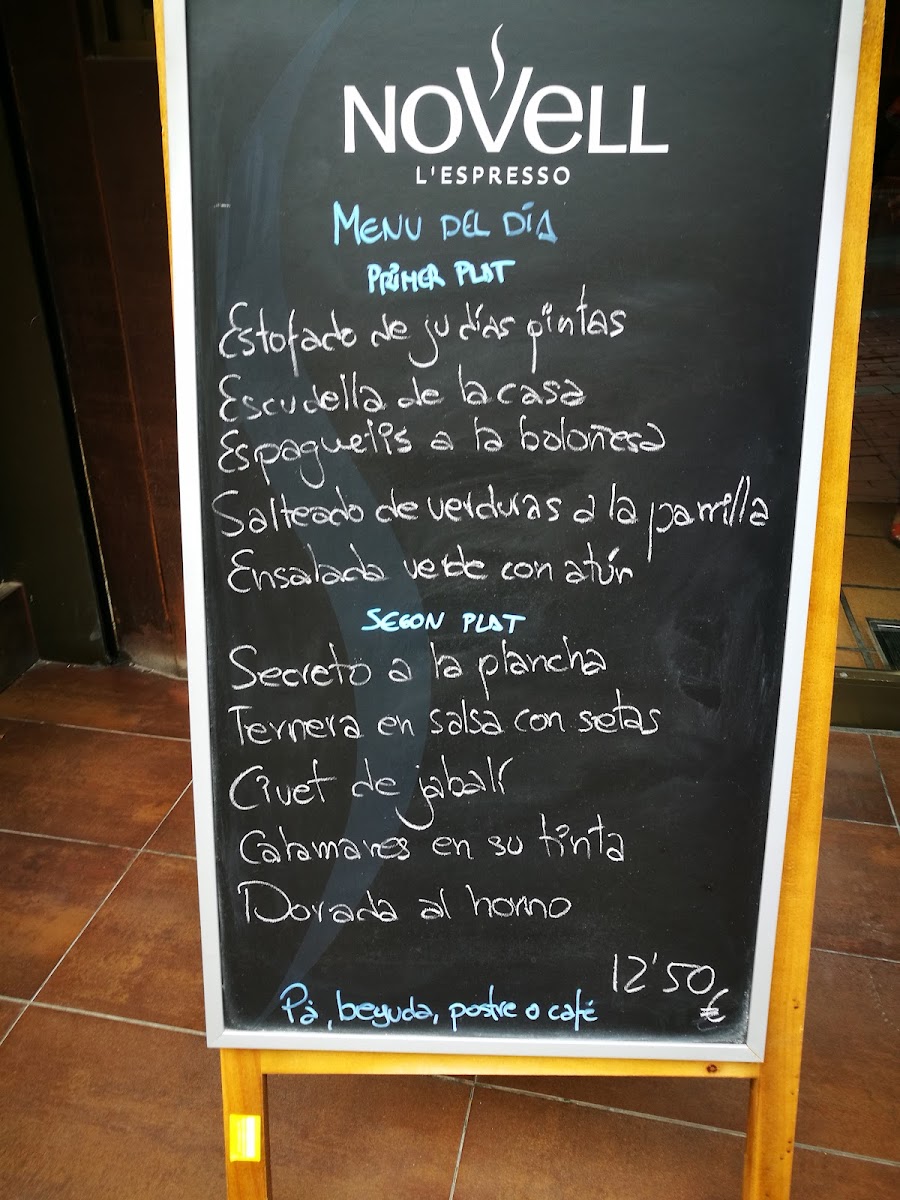 NoVeLL
L'ESPRESSO
MENU DEL DÍA
PRIMER PLAT
Estofado de judías pintas
Escudella de la casa
Espaguetis a la boloñesa
Salteado de verduras a la parrilla
Ensalada verde con atún
SEGON PLAT
Secreto a la plancha
Ternera en salsa con setas
Civet de jabalí
Calamares en su tinta
Dorada al horno
12'50
€
Pà, beguda, postre o café